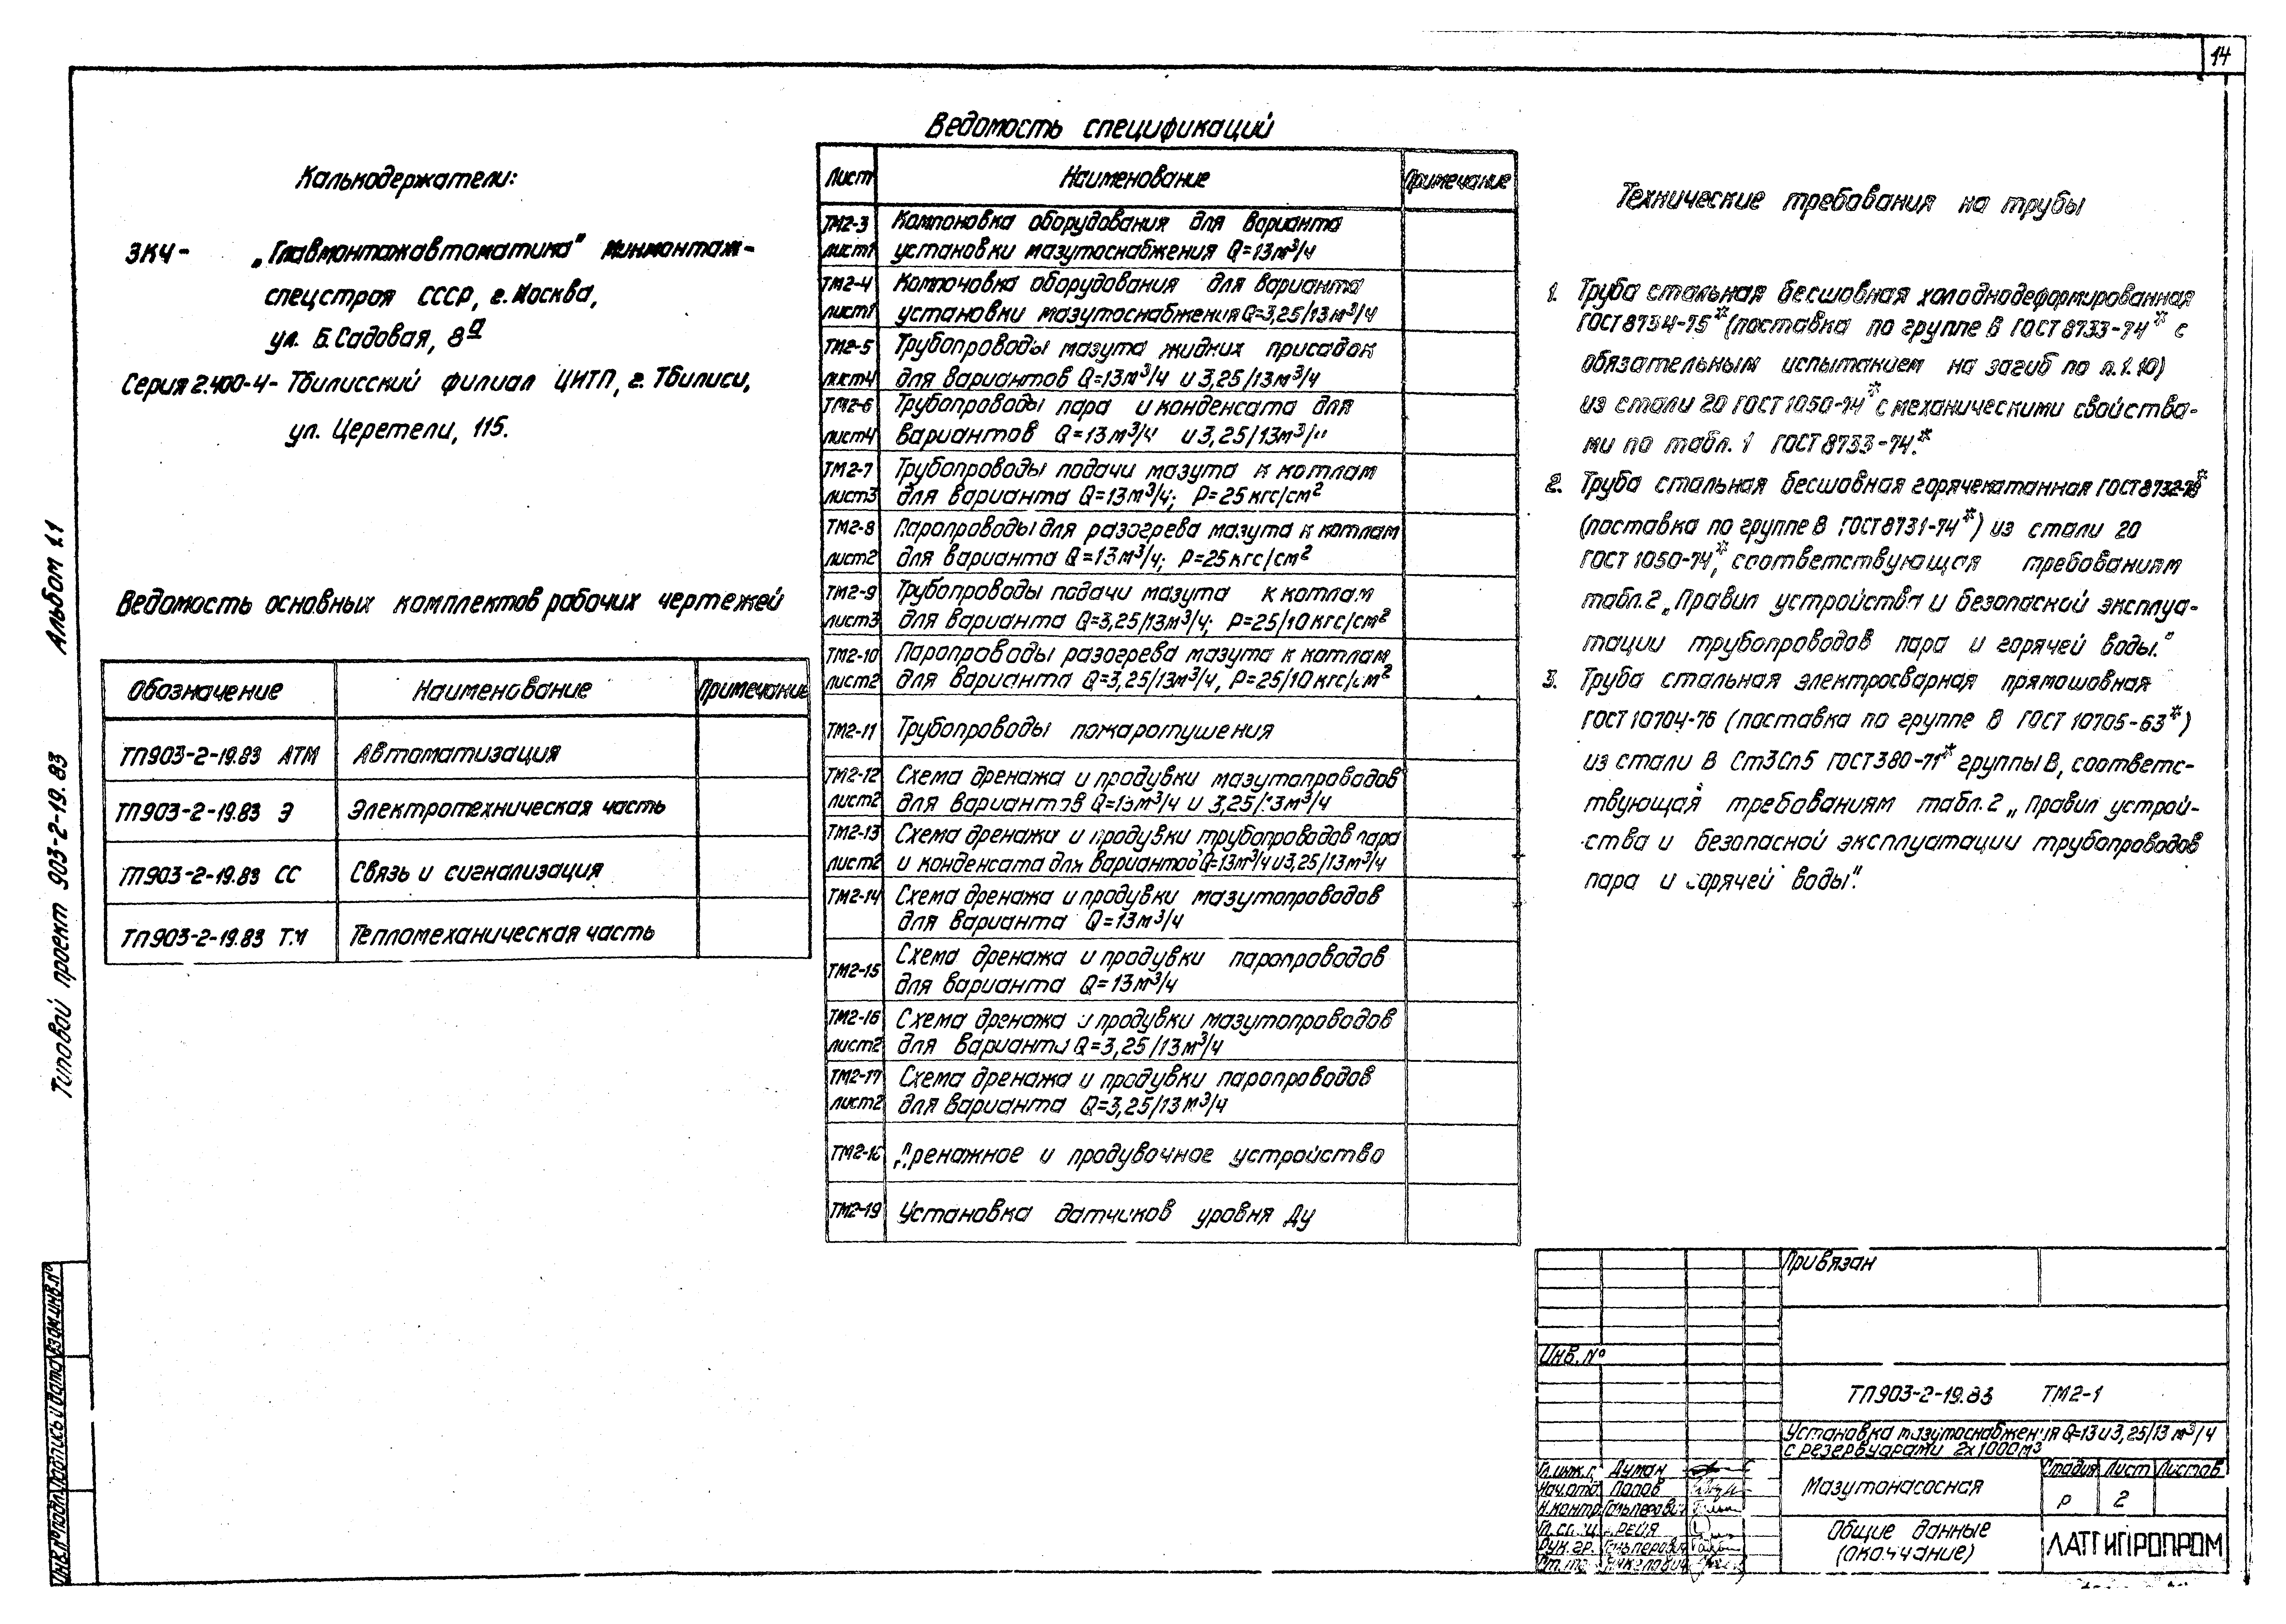 14
Калькодержатели:
ЗКЧ- „Главмонтажавтоматика" минмонтаж-
спецстроя СССР, г. Москва,
ул. Б. Садовая, 8а
Серия 2.400-4- Тбилисский филиал ЦИТП, г. Тбилиси,
ул. Церетели, 115.
Ведомость основных комплектов рабочих чертежей
Обозначение Наименование Примечание
ТП903-2-19.83 АТМ Автоматизация
ТП903-2-19.83 Э Электротехническая часть
ТП903-2-19.83 СС Связь и сигнализация
ТП903-2-19.83 ТМ Тепломеханическая часть
Ведомость спецификаций
Лист Наименование Примечание
ТМ2-3 Компоновка оборудования для варианта
лист1 установки мазутоснабжения Q=13м³/ч
ТМ2-4 Компоновка оборудования для варианта
лист1 установки мазутоснабжения Q=3,25/13м³/ч
ТМ2-5 Трубопроводы мазута жидких присадок
лист4 для вариантов Q=13м³/ч и 3,25/13м³/ч
ТМ2-6 Трубопроводы пара и конденсата для
лист4 вариантов Q=13м³/ч и 3,25/13м³/ч
ТМ2-7 Трубопроводы подачи мазута к котлам
лист3 для варианта Q=13м³/ч; Р=25кгс/см²
ТМ2-8 Паропроводы для разогрева мазута к котлам
лист2 для варианта Q=13м³/ч; Р=25кгс/см²
ТМ2-9 Трубопроводы подачи мазута к котлам
лист3 для варианта Q=3,25/13м³/ч; Р=25/10кгс/см²
ТМ2-10 Паропроводы разогрева мазута к котлам
лист2 для варианта Q=3,25/13м³/ч, Р=25/10кгс/см²
ТМ2-11 Трубопроводы пожаротушения
ТМ2-12 Схема дренажа и продувки мазутопроводов
лист2 для вариантов Q=13м³/ч и 3,25/13м³/ч
ТМ2-13 Схема дренажи и продувки трубопроводов пара
лист2 и конденсата для вариантов Q=13м³/ч и 3,25/13м³/ч
ТМ2-14 Схема дренажа и продувки мазутопроводов
для варианта Q=13м³/ч
ТМ2-15 Схема дренажа и продувки паропроводов
для варианта Q=13м³/ч
ТМ2-16 Схема дренажа и продувки мазутопроводов
лист2 для варианта Q=3,25/13м³/ч
ТМ2-17 Схема дренажа и продувки паропроводов
лист2 для варианта Q=3,25/13м³/ч
Дренажное и продувочное устройство
ТМ2-19 Установка датчиков уровня Ду
Технические требования на трубы
1. Труба стальная бесшовная холоднодеформированная
ГОСТ 8734-75* (поставка по группе В ГОСТ 8733-74* с
обязательным испытанием на загиб по п.1.10)
из стали 20 ГОСТ 1050-74* с механическими свойства-
ми по табл. 1 ГОСТ 8733-74.*
2. Труба стальная бесшовная горячекатанная ГОСТ 8732-78*
(поставка по группе В ГОСТ 8731-74*) из стали 20
ГОСТ 1050-74*, соответствующая требованиям
табл.2 „Правил устройства и безопасной эксплуа-
тации трубопроводов пара и горячей воды."
3. Труба стальная электросварная прямошовная
ГОСТ 10704-76 (поставка по группе В ГОСТ 10705-63*)
из стали В Ст3Сп5 ГОСТ 380-71* группы В, соответс-
твующая требованиям табл.2 „Правил устрой-
ства и безопасной эксплуатации трубопроводов
пара и горячей воды".
Типовой проект 903-2-19.83 Альбом 1.1
Инв.№подл. Подпись и дата Взам.инв.№
Привязан
Инв.№
ТП903-2-19.83 ТМ2-1
Установка мазутоснабжения Q=13 и 3,25/13 м³/ч
с резервуарами 2х1000м³
Гл.инж. Думан
Нач.отд. Попов
Н.контр. Гальперович
Рук.гр. Гальперович
Мазутонасосная
Стадия Лист Листов
Р 2
Общие данные
(окончание)
ЛАТГИПРОПРОМ